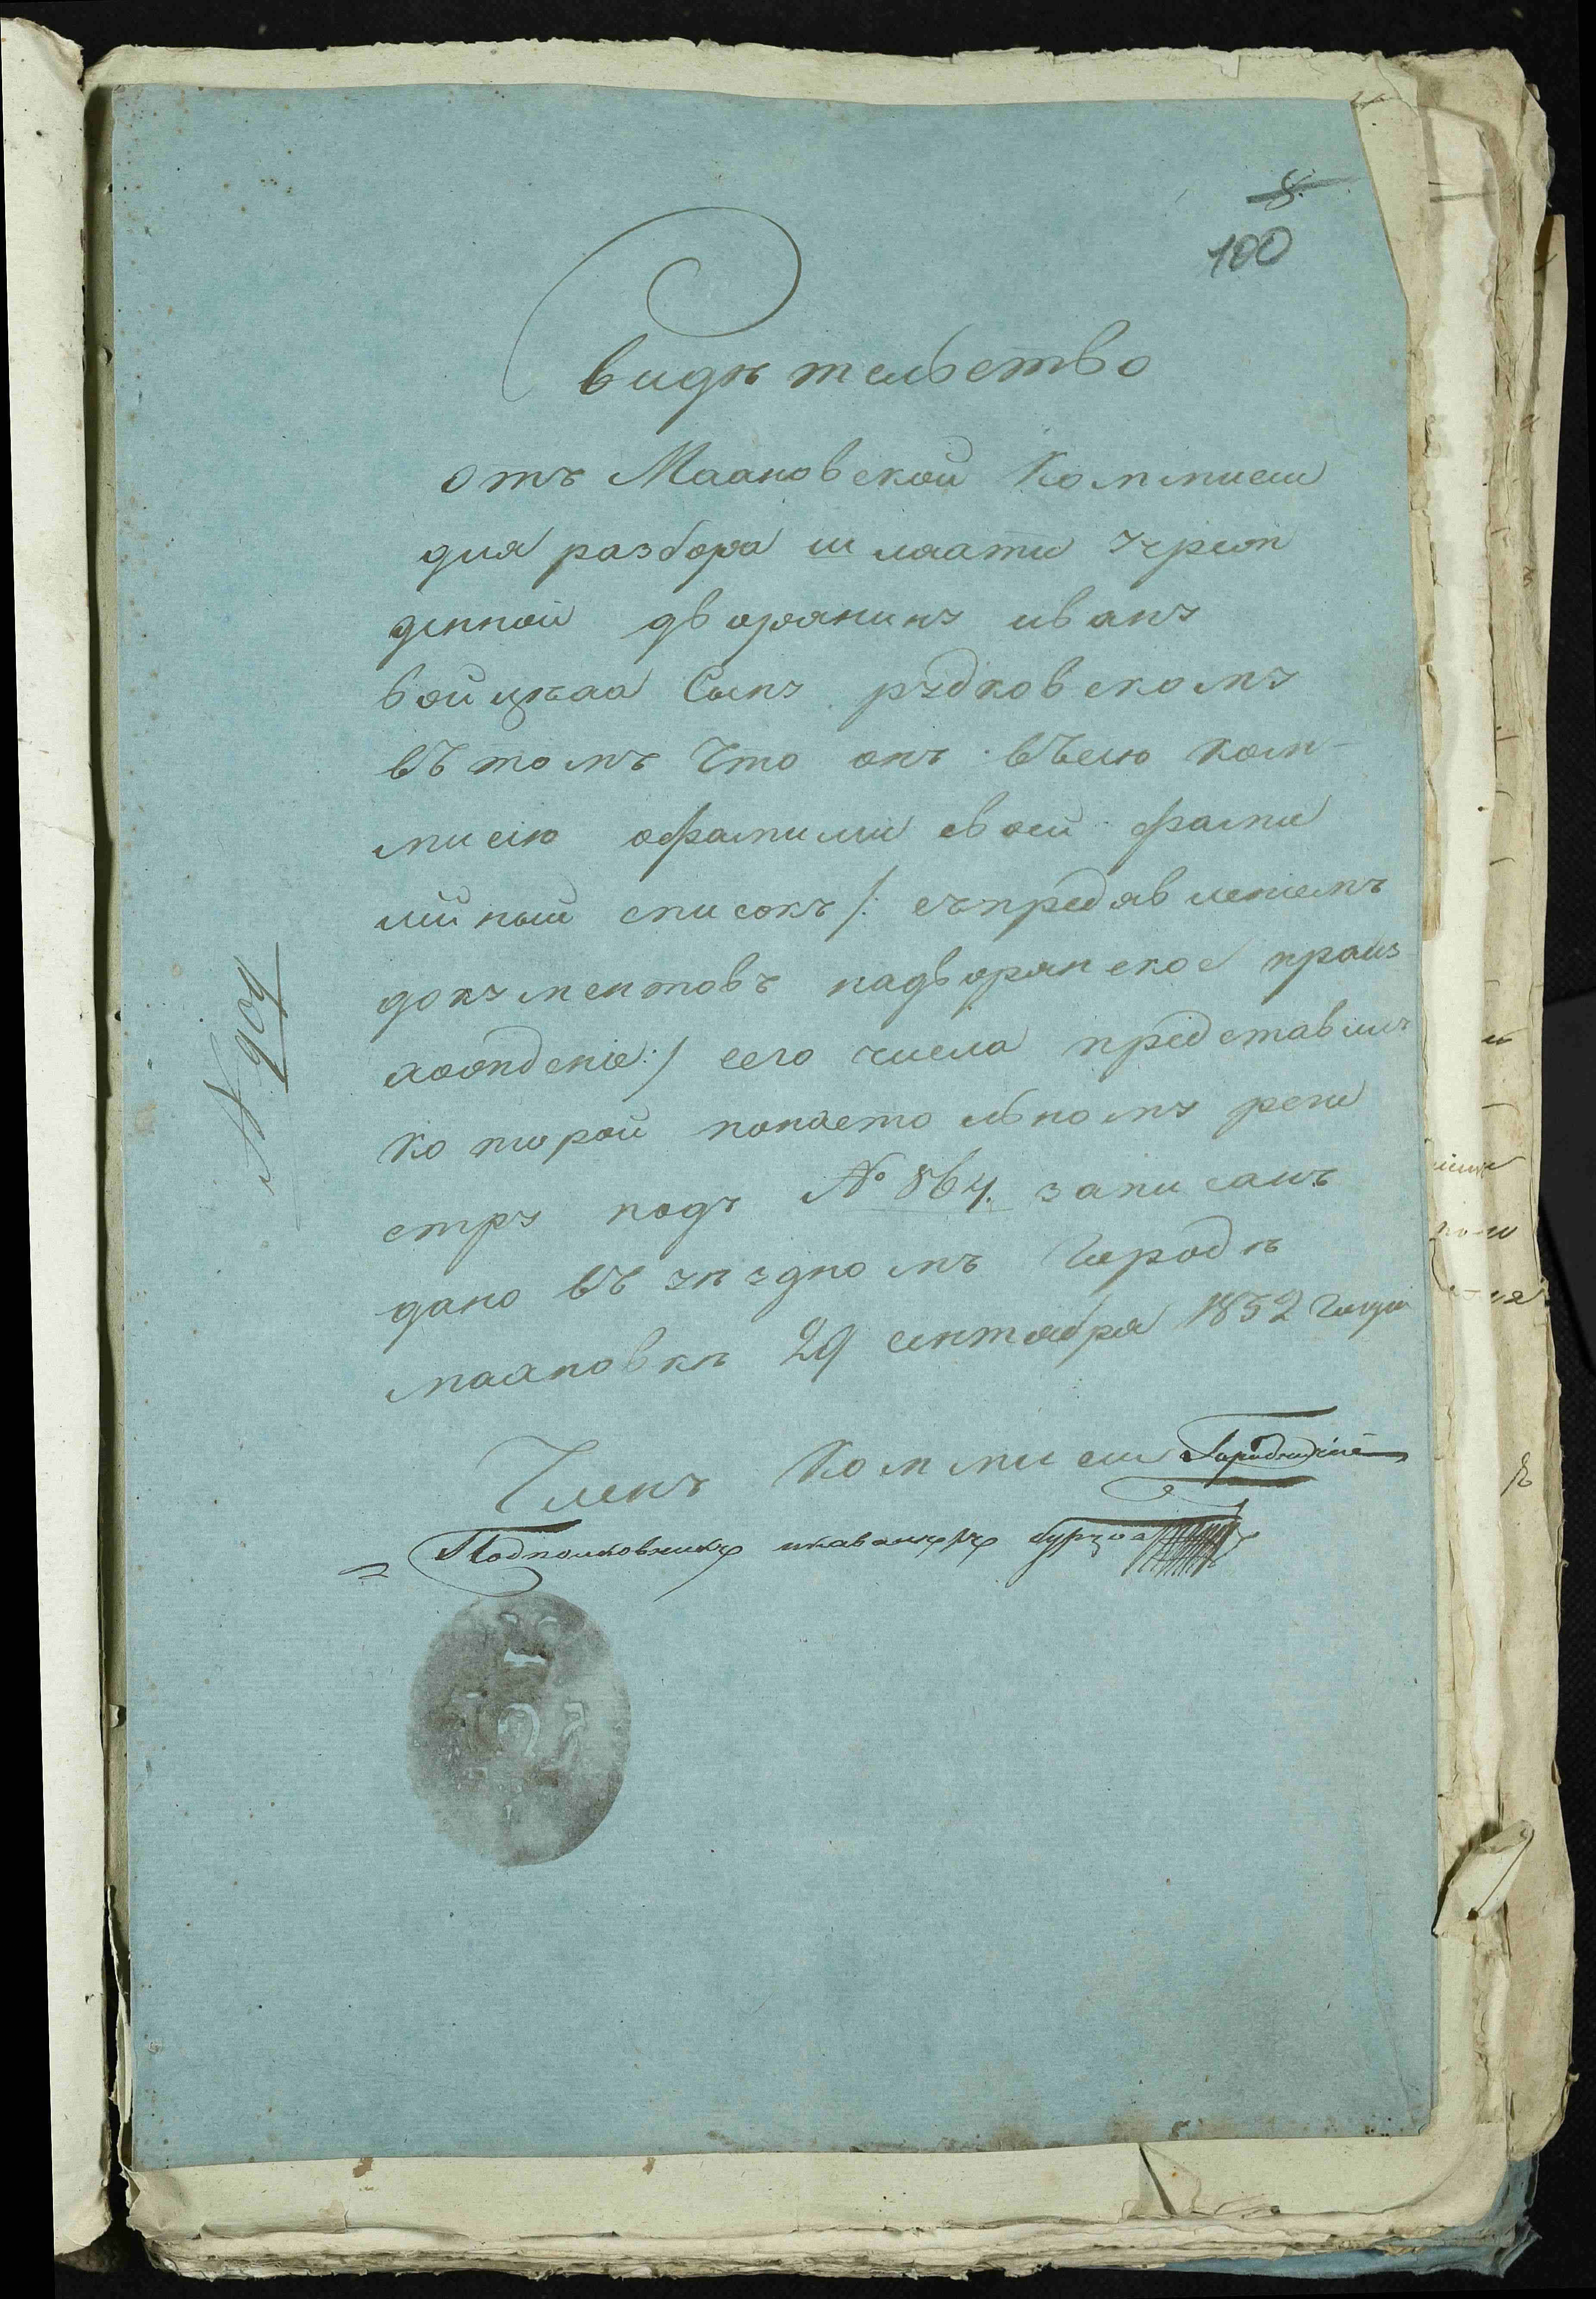 8.
100
Свидѣтельство
отъ Махновской Коммисіи
для разбора шляхти учреж
денной дворянину ивану
войцеха Сыну рудковскому
въ томъ Что онъ въсію ком-
мисію офамиліи своей фами
лійный списокъ /: съпредявленіемъ
документовъ надворянское проиs
хожденіе :/ сего числа представилъ
которой понастольному реги
стру подъ № 864. записанъ
дано въ уѣздномъ Городѣ
махновкѣ 29 сентября 1832 Года
№ 909
Членъ Коммисіи
Подполковникъ икавалеръ